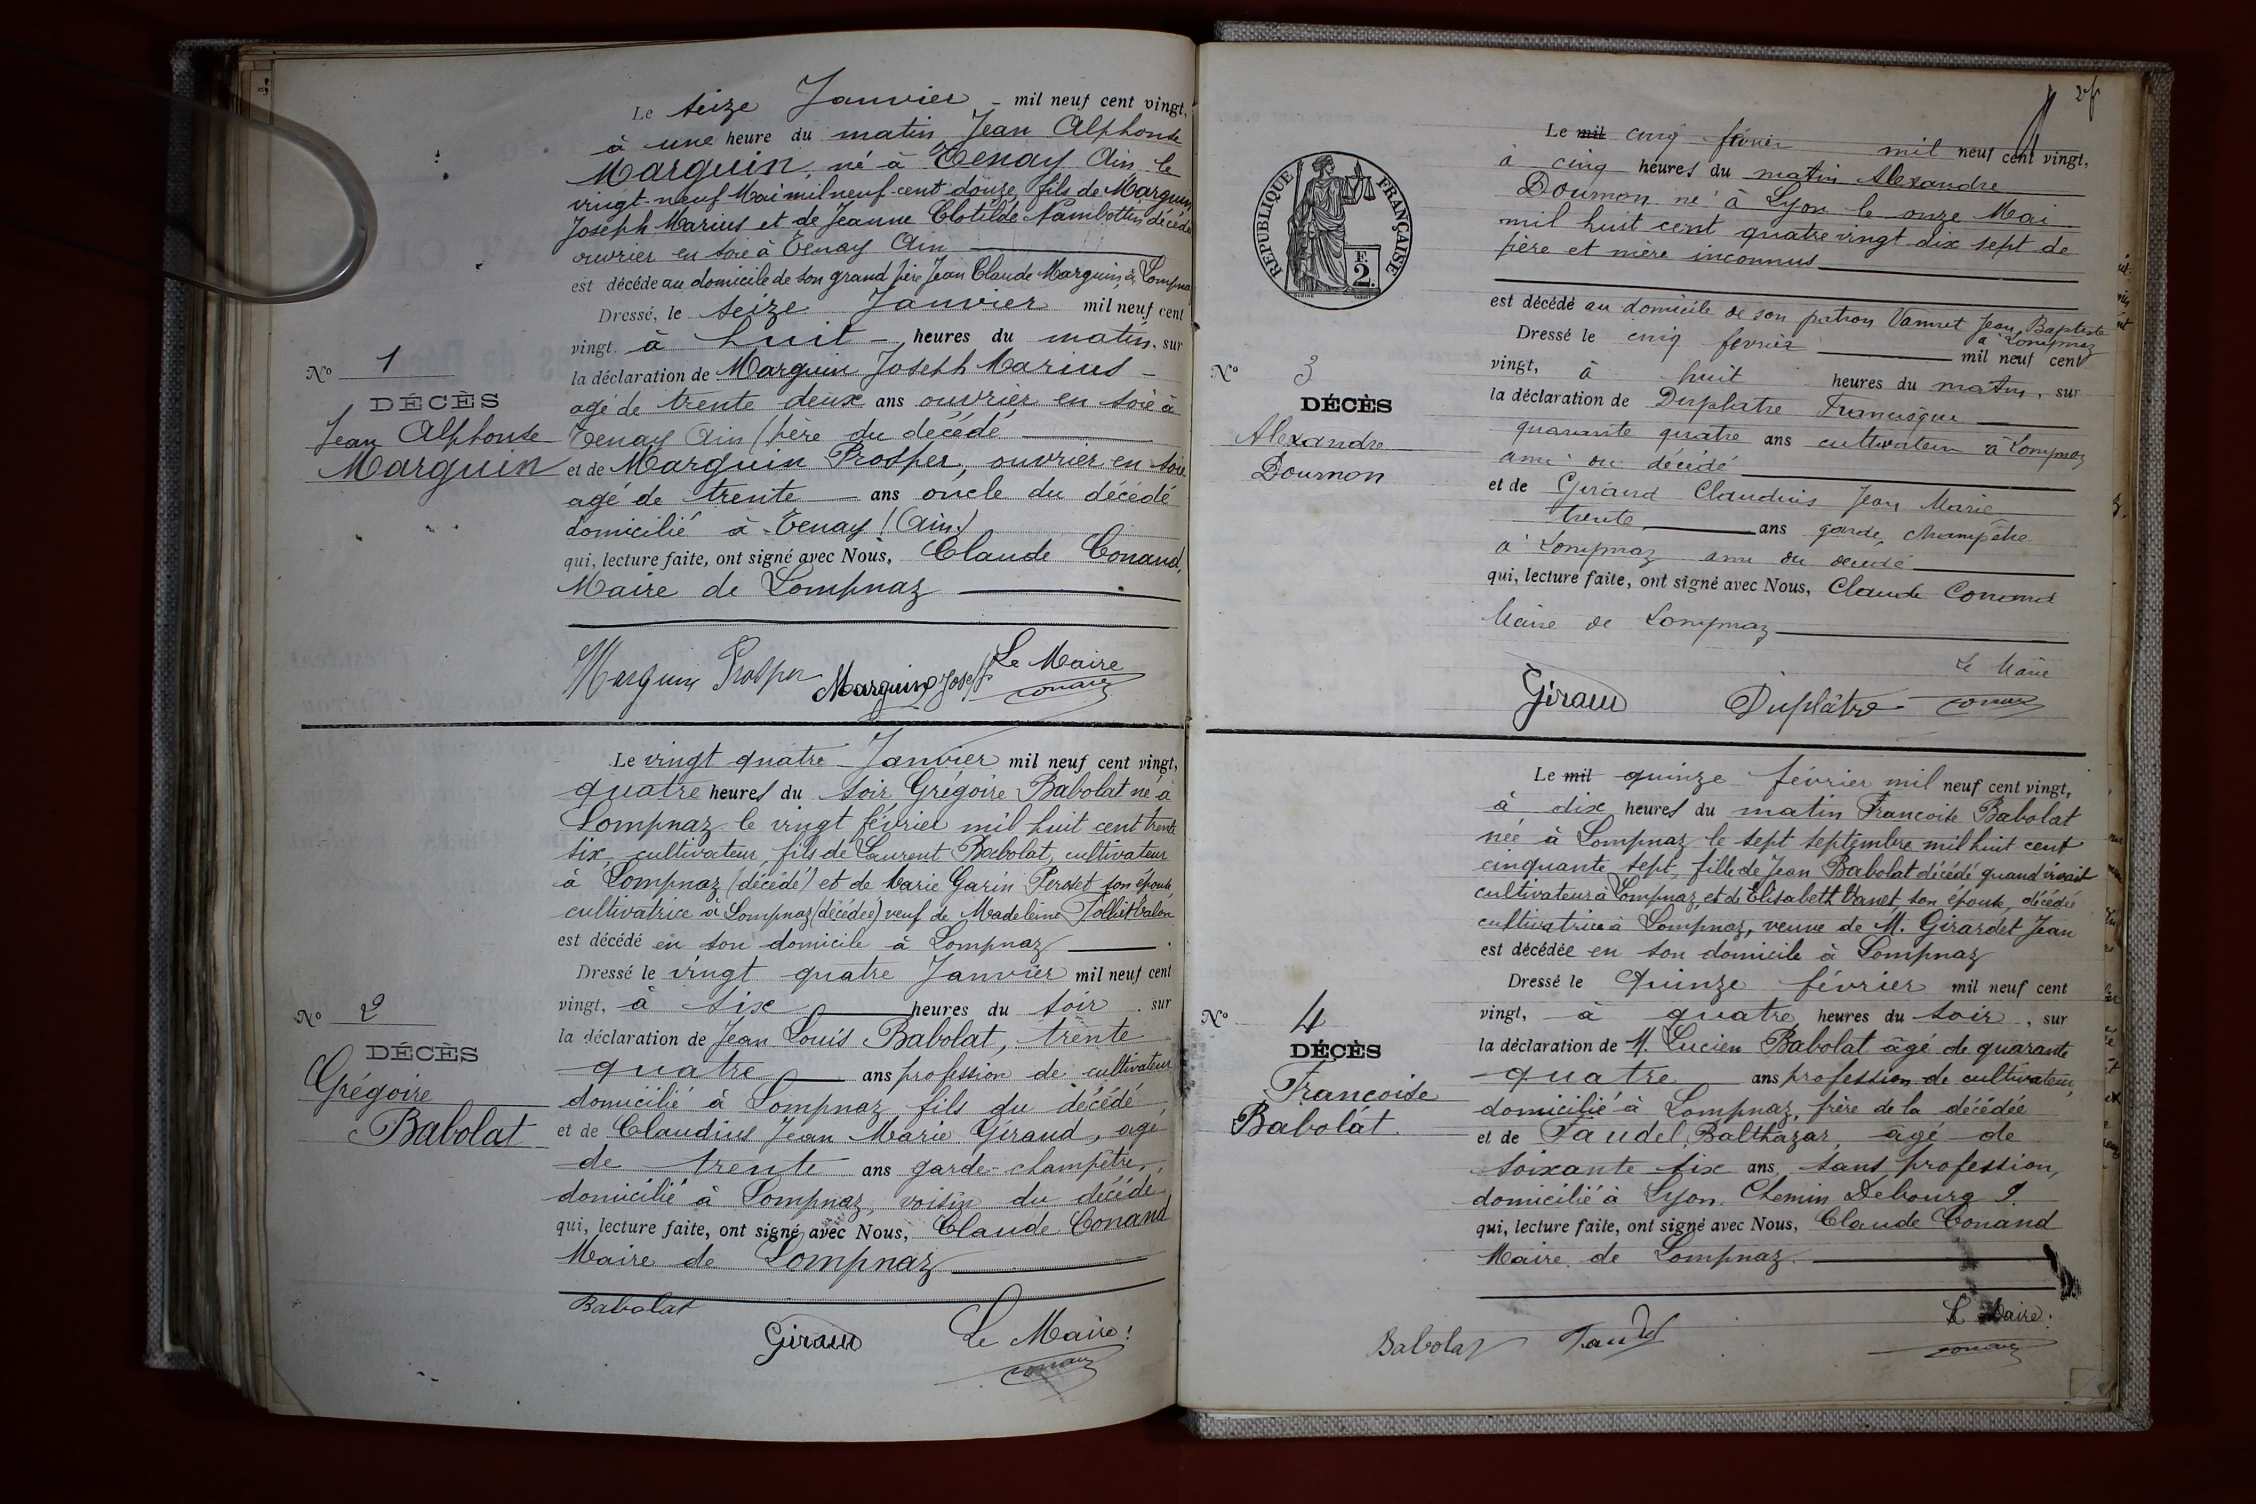 Le seize Janvier - mil neuf cent vingt,
à une heure du matin Jean Alphonse
Marguin, né à Tenay Ain, le
vingt-neuf Mai mil neuf-cent douze, fils de Marguin
Joseph Marius et de Jeanne Clotilde décédée
ouvrier en soie à Tenay Ain
est décédé au domicile de son grand père Jean Claude Marguin, à Lompnaz
Dressé, le seize Janvier mil neuf cent
vingt à huit - heures du matin, sur
la déclaration de Marguin Joseph Marius -
agé de trente deux ans ouvrier en soie à
Tenay Ain (père du décédé
et de Marguin Prosper, ouvrier en soie
agé de trente - ans oncle du décédé
domicilié à Tenay ! (Ain)
qui, lecture faite, ont signé avec Nous, Claude Conand,
Maire de Lompnaz
Marguin Prosper Marguin Joseph Le Maire
Conand
No 1
DÉCÈS
Jean Alphonse
Marguin
Le vingt quatre Janvier mil neuf cent vingt,
quatre heures du soir Grégoire Babolat né à
Lompnaz le vingt février mil huit cent trente
six, cultivateur, fils de Laurent Babolat, cultivateur
à Lompnaz (décédé) et de Marie Garin Peroset son épouse,
cultivatrice à Lompnaz (décédée) veuf de Madeleine
est décédé en son domicile à Lompnaz
Dressé le vingt quatre Janvier mil neuf cent
vingt, à six heures du soir, sur
la déclaration de Jean Louis Babolat, trente
quatre ans profession de cultivateur
domicilié à Lompnaz, fils du décédé,
et de Claudius Jean Marie Giraud, agé
de trente ans garde-champêtre,
domicilié à Lompnaz, voisin du décédé,
qui, lecture faite, ont signé avec Nous, Claude Conand
Maire de Lompnaz
Babolat
Giraud Le Maire !
Conand
No 2
DÉCÈS
Grégoire
Babolat
2f
RÉPUBLIQUE FRANÇAISE
F.
2.
Le mil cinq février mil neuf cent vingt,
à cinq heures du matin Alexandre
Doumon né à Lyon le onze Mai
mil huit cent quatre vingt dix sept de
père et mère inconnus
est décédé au domicile de son patron Vannet Jean Baptiste
à Lompnaz
Dressé le cinq février mil neuf cent
vingt, à huit heures du matin, sur
la déclaration de Duplatre Francisque
quarante quatre ans cultivateur à Lompnaz
ami du décédé
et de Giraud Claudius Jean Marie
trente ans garde champêtre
à Lompnaz ami du décédé
qui, lecture faite, ont signé avec Nous, Claude Conand
Maire de Lompnaz
Le Maire
Giraud Duplâtre Conand
No 3
DÉCÈS
Alexandre
Doumon
Le mil quinze février mil neuf cent vingt,
à dix heures du matin Francoise Babolat
née à Lompnaz le sept septembre mil huit cent
cinquante sept, fille de Jean Babolat décédé quand vivait
cultivateur à Lompnaz, et de Elisabeth Vanet, son épouse, décédée
cultivatrice à Lompnaz, veuve de M. Girardet Jean
est décédée en son domicile à Lompnaz
Dressé le Quinze février mil neuf cent
vingt, à quatre heures du soir, sur
la déclaration de M. Lucien Babolat âgé de quarante
quatre ans profession de cultivateur,
domicilié à Lompnaz, frère de la décédée
et de Taudel, Balthazar, âgé de
soixante six ans, sans profession,
domicilié à Lyon. Chemin Debourg 9
qui, lecture faite, ont signé avec Nous, Claude Conand
Maire de Lompnaz.
Le Maire.
Babolat Taudel Conand
No 4
DÉCÈS
Francoise
Babolat